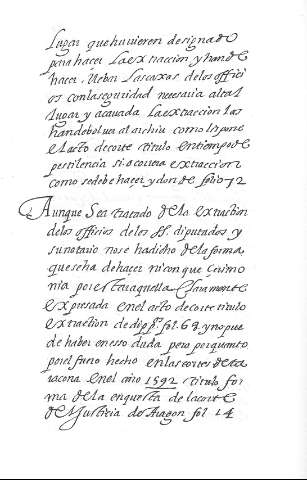 Lugar que huvieren designado
para hacer La extraccion y han de
hacer llebar Las caxas de los offici
os con la seguridad necesaria al tal
Lugar y acavada La extraccion Las
han de bolver al archiu como dispone
el acto de corte titulo en tiempo de
pestilencia si ocorrera extraccion
como se debe hacer y donde folio 72
Aunque Se a tratado de La extraction
de los officios de los SS. diputados y
su notario no se ha dicho de la forma
que se ha de hacer ni con que Cerimo
nia por estar aquella Claramente
expresada en el acto de corte titulo
extraction de dipp. fol. 68 y no pue
de haber en esso duda pero por quanto
por el fuero hecho en las cortes de ta
racona en el año 1592 titulo for
ma de La enquesta de la corte
del Justicia de Aragon fol 14